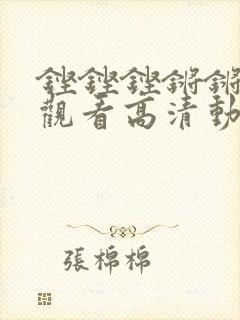 鏗鏗鏗鏘鏘
觀看高清動
張棉棉